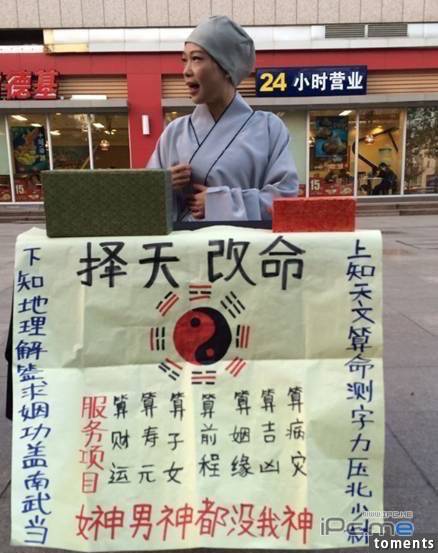 德基
24 小时营业
15
15
择天改命
上知天文算命测字力压北少林
下知地理解签求姻功盖南武当
服务项目
算财运
算寿元
算子女
算前程
算姻缘
算吉凶
算病灾
女神男神都没我神
iPcme
toments